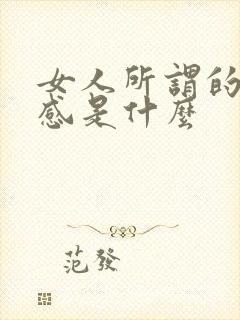 女人所謂的
感是什麼
范發